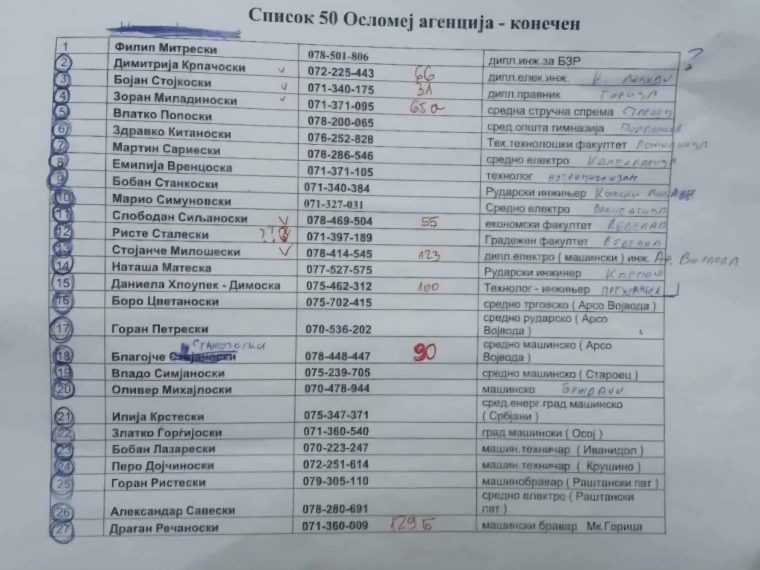 Список 50 Осломеј агенција - конечен
1 Филип Митрески 078-501-806 дипл.инж.за БЗР ?
2 Димитрија Крпачоски 072-225-443 66 дипл.елек.инж.
3 Бојан Стојкоски 071-340-175 31 дипл.правник
4 Зоран Миладиноски 071-371-095 65а средна стручна спрема
5 Влатко Попоски 078-200-065 сред.општа гимназија
6 Здравко Китаноски 076-252-828 Тех.технолошки факултет
7 Мартин Сариески 078-286-546 средно електро
8 Емилија Вренцоска 071-371-105 технолог
9 Бобан Станкоски 071-340-384 Рударски инжињер
10 Марио Симуновски 071-327-031 Средно електро
11 Слободан Сиљаноски 078-469-504 55 економски факултет
12 Ристе Сталески 071-397-189 Градежен факултет
13 Стојанче Милошески 078-414-545 123 дипл.електро ( машински ) инж. Ар. Војвода
14 Наташа Матеска 077-527-575 Рударски инжинер
15 Даниела Хлоупек - Димоска 075-462-312 100 Технолог - инжињер
16 Боро Цветаноски 075-702-415 средно трговско ( Арсо Војвода )
17 Горан Петрески 070-536-202 средно рударско ( Арсо
Војвода )
18 Благојче 078-448-447 90 средно машинско ( Арсо
Војвода )
19 Владо Симјаноски 075-239-705 средно машинско ( Староец )
20 Оливер Михајлоски 070-478-944 машинско
21 Илија Крстески 075-347-371 сред.енерг.град.машинско
( Србјани )
22 Златко Ѓорѓијоски 071-360-540 град машински ( Осој )
23 Бобан Лазарески 070-223-247 машин.техничар ( Иванидол )
24 Перо Дојчиноски 072-251-614 машин.техничар ( Крушино )
25 Горан Ристески 079-305-110 машинобравар ( Раштански пат )
26 Александар Савески 078-280-691 средно електро ( Раштански
пат )
27 Драган Речаноски 071-360-009 129Б машински бравар Мк.Горица